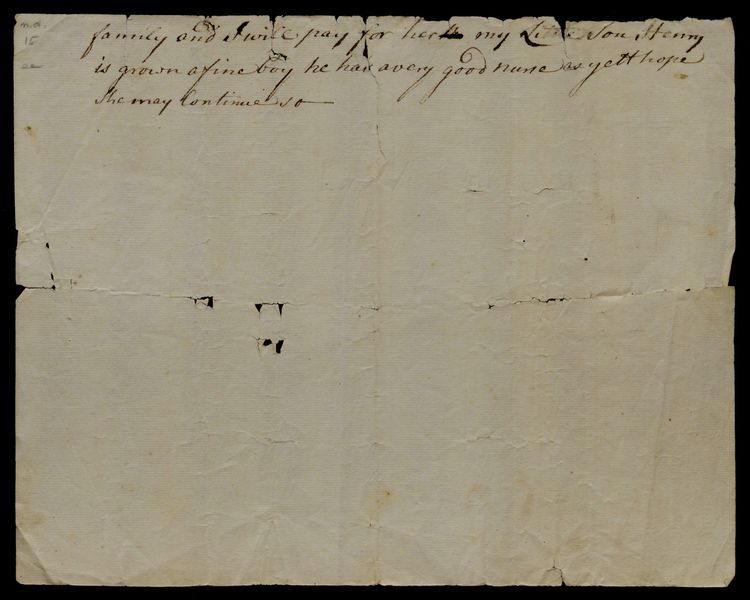 n.d.
15
family and I will pay for her my Little Son Henry
is grown a fine boy he has a very good nurse as yett hope
she may Continue so —